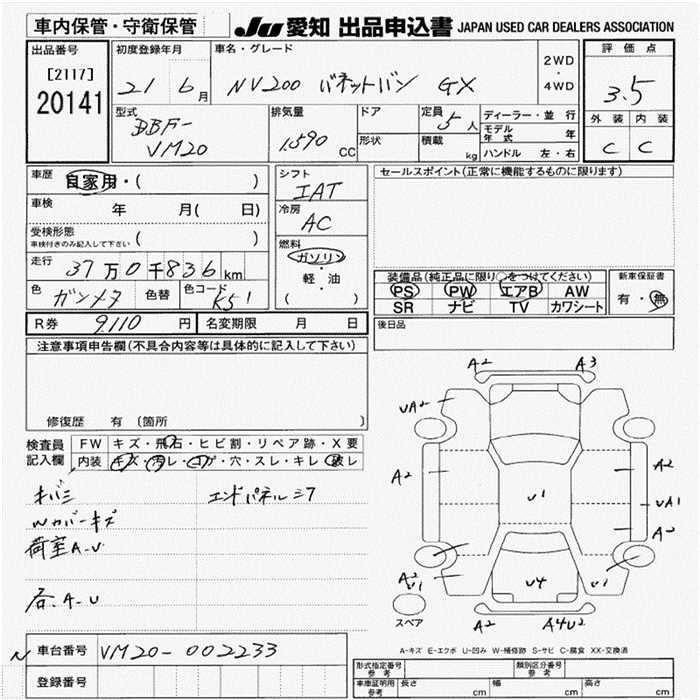 車内保管・守衛保管
JU 愛知 出品申込書 JAPAN USED CAR DEALERS ASSOCIATION
出品番号
[2117]
20141
初度登録年月
21 6月
車名・グレード
NV200 バネットバン GX
2WD
・
4WD
評価点
3.5
外装 内装
C C
型式
DBF-
VM20
排気量
1.590 CC
ドア
形状
定員
5人
積載
kg
ディーラー・並行
モデル年式 年
ハンドル 左・右
車歴 自家用・( )
車検 年 月( 日)
受検形態
車検付きのみ記入して下さい ( )
走行 37万0千836km
色 ガンメタ 色替 色コード K51
シフト
IAT
冷房
AC
燃料
ガソリン
・
軽・油
( )
セールスポイント(正常に機能するものに限ります)
装備品(純正品に限り○をつけてください)
PS PW エアB AW
SR ナビ TV カワシート
新車保証書
有・無
R券 9.110 円 名変期限 月 日
後日品
注意事項申告欄(不具合内容等は具体的に記入して下さい)
修復歴 有 〔箇所 〕
検査員記入欄
FW キズ・飛石・ヒビ割・リペア跡・X要
内装 キズ・汚レ・コゲ・穴・スレ・キレ・破レ
キバミ エンドパネルシワ
Wカバーキズ
荷室A.U
各.A-U
A2 A3
UA2
A2 A2
U1 UA1
A2
A2
U1 U4 U1
スペア
A2 A4U2
A-キズ E-エクボ U-凹み W-補修跡 S-サビ C-腐食 XX-交換済
N 車台番号 VM20-002233
登録番号
形式指定番号 参考 類別区分番号 参考
車庫証明用 参考 長さ cm 幅 cm 高さ cm